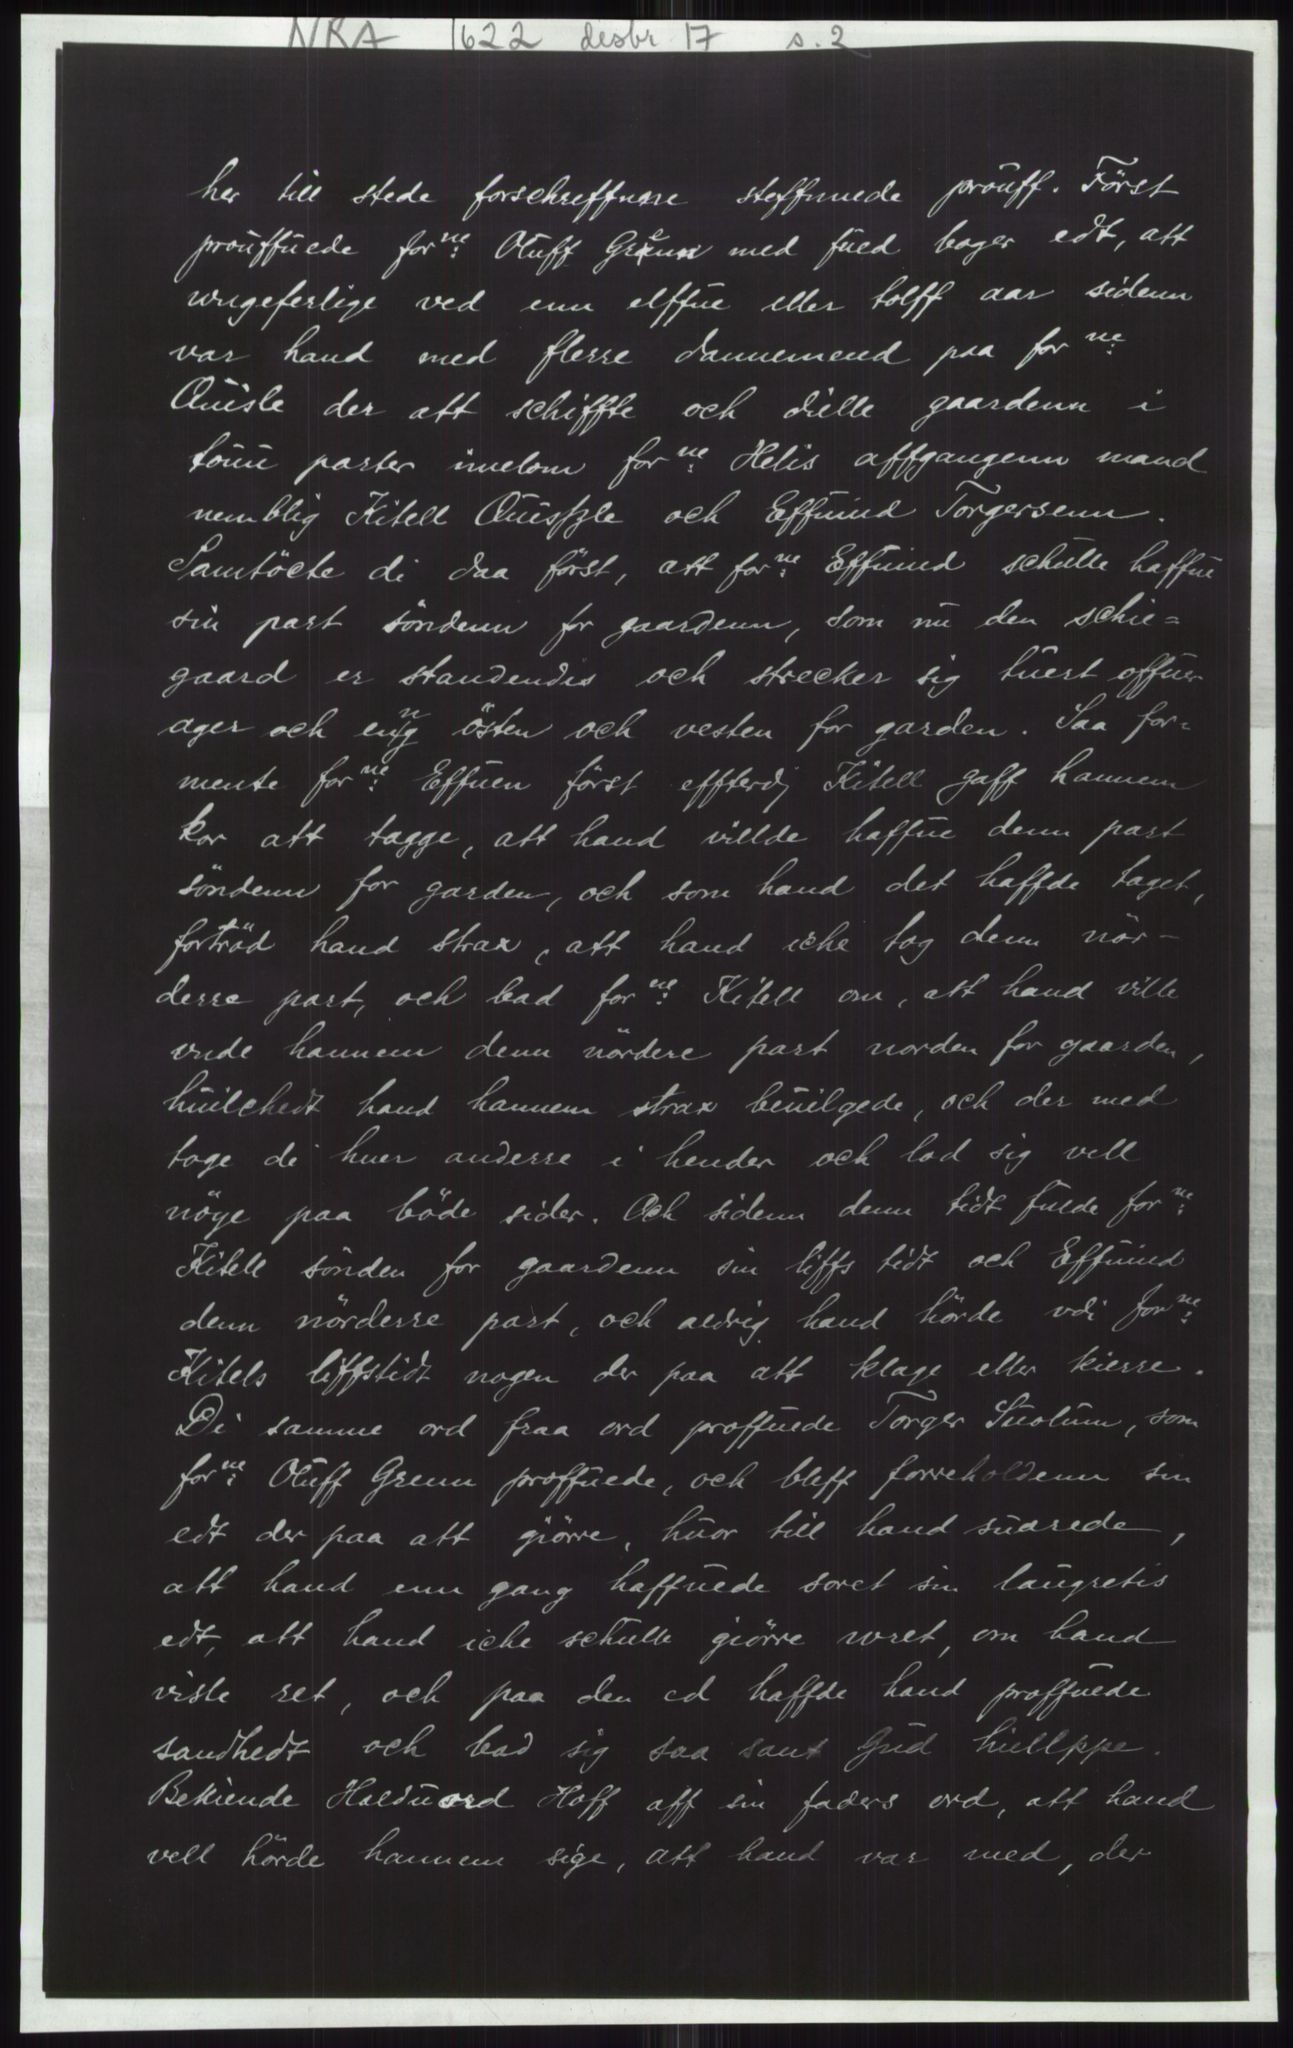 NRA 1622 desbr 17 s. 2
her till stede forschreffnne steffnnede prouff. Först
prouffuede forne: Oluff Grenn med fued boger edt, att
wngeferlige ved enn elffue eller tolff aar sidenn
var hand med flerre dannemend paa forne:
Quisle der att schiffte och dielle gaardenn i
touu parter imelom forne: Helis affgangenn mand
nemblig Kitell Quissle och Effuind Torgersenn.
Samtöcte di daa först, att forne: Effuind schulle haffue
sin part söndenn for gaardenn, som nu den schie=
gaard er standendis och strecker sig tuert offuer
ager och enng östen och vesten for garden. Saa for=
mente forne: Effuen först effterdj Kitell gaff hannem
kor att tagge, att hand villde haffue denn part
söndenn for garden, och som hand det haffde taget,
forträd hand strax, att hand iche tog denn nör-
derre part, och bad forne: Kitell om, att hand ville
vnde hannem denn nördere part norden for gaarden,
huilchedt hand hannem strax beuilgede, och der med
toge di huer anderre i hender och lod sig vell
nöye paa böde sider. Och sidenn denn tidt fulde forne:
Kitell sönden for gaardenn sin liffs tidt och Effuind
denn nörderre part, och aldrig hand hörde vdi forne:
Kitels liffstidt nogen der paa att klage eller kierre.
Di samme ord fraa ord proffuede Torger Suolum, som
forne: Oluff Grenn proffuede, och bleff forreholdenn sin
edt der paa att giörre, huor till hand suarede,
att hand enn gang haffuede soret sin laugretis
edt, att hand iche schulle giörre wret, om hand
viste ret, och paa den ed haffde hand proffuede
sandhedt och bad sig saa sant Gud hiellppe.
Bekiende Halduord Hoff aff sin faders ord, att hand
vell hörde hannem sige, att hand var med, der